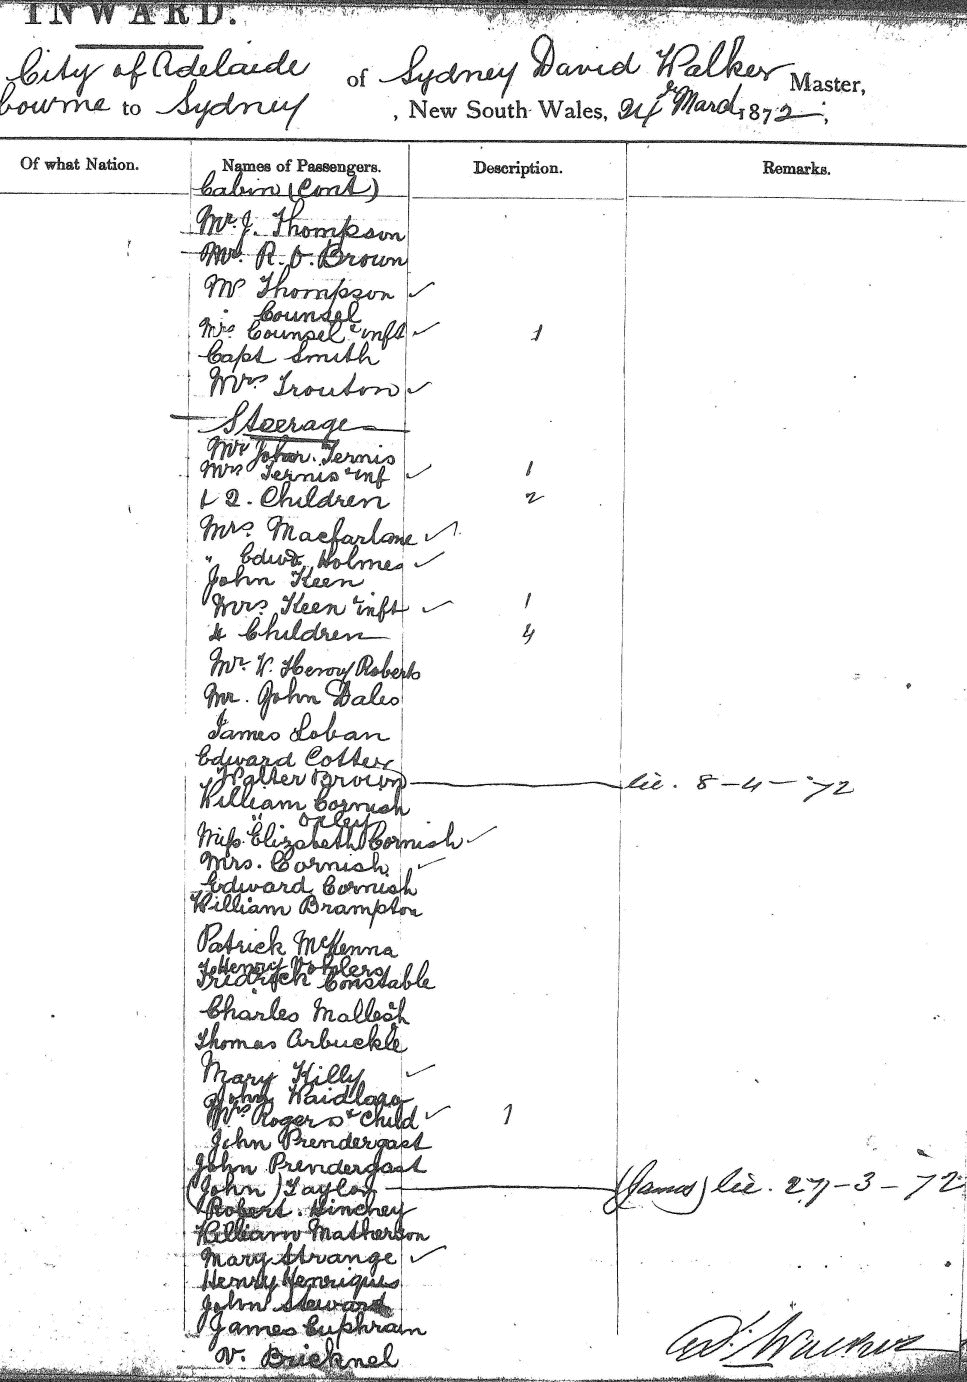 INWARD.
City of Adelaide of Sydney David Walker Master,
bourne to Sydney , New South Wales, 24 March 1872;
Of what Nation. Names of Passengers. Description. Remarks.
Cabin (Cont)
Mr. J. Thompson
Mr. R. O. Brown
Mrs Thompson
" Counsel
Mrs Counsel & inft 1
Capt Smith
Mrs Trouton
Steerage
Mr John Ternis
Mrs Ternis & inf 1
& 2. Children 2
Mrs. Macfarlane
" Edwd Holmes
John Keen
Mrs. Keen & inft 1
4 Children 4
Mr. W. Henry Roberts
Mr. John Dales
James Loban
Edward Cotter
Walter Brown lie. 8-4-72
William Cornish
" Oxley
Miss Elizabeth Cornish
Mrs. Cornish
Edward Cornish
William Brampton
Patrick McKenna
Henry Wohlers
Fredrick Constable
Charles Mallesh
Thomas Arbuckle
Mary Killy
John
Mrs Rogers & Child 1
John Prendergast
John Prendergast
(John) Taylor (James) lie. 27-3-72
Robert. Hinchey
William Matherson
Mary Strange
Henry Henriques
John Steward
James Euphram
W. Bricknel
D. Walker